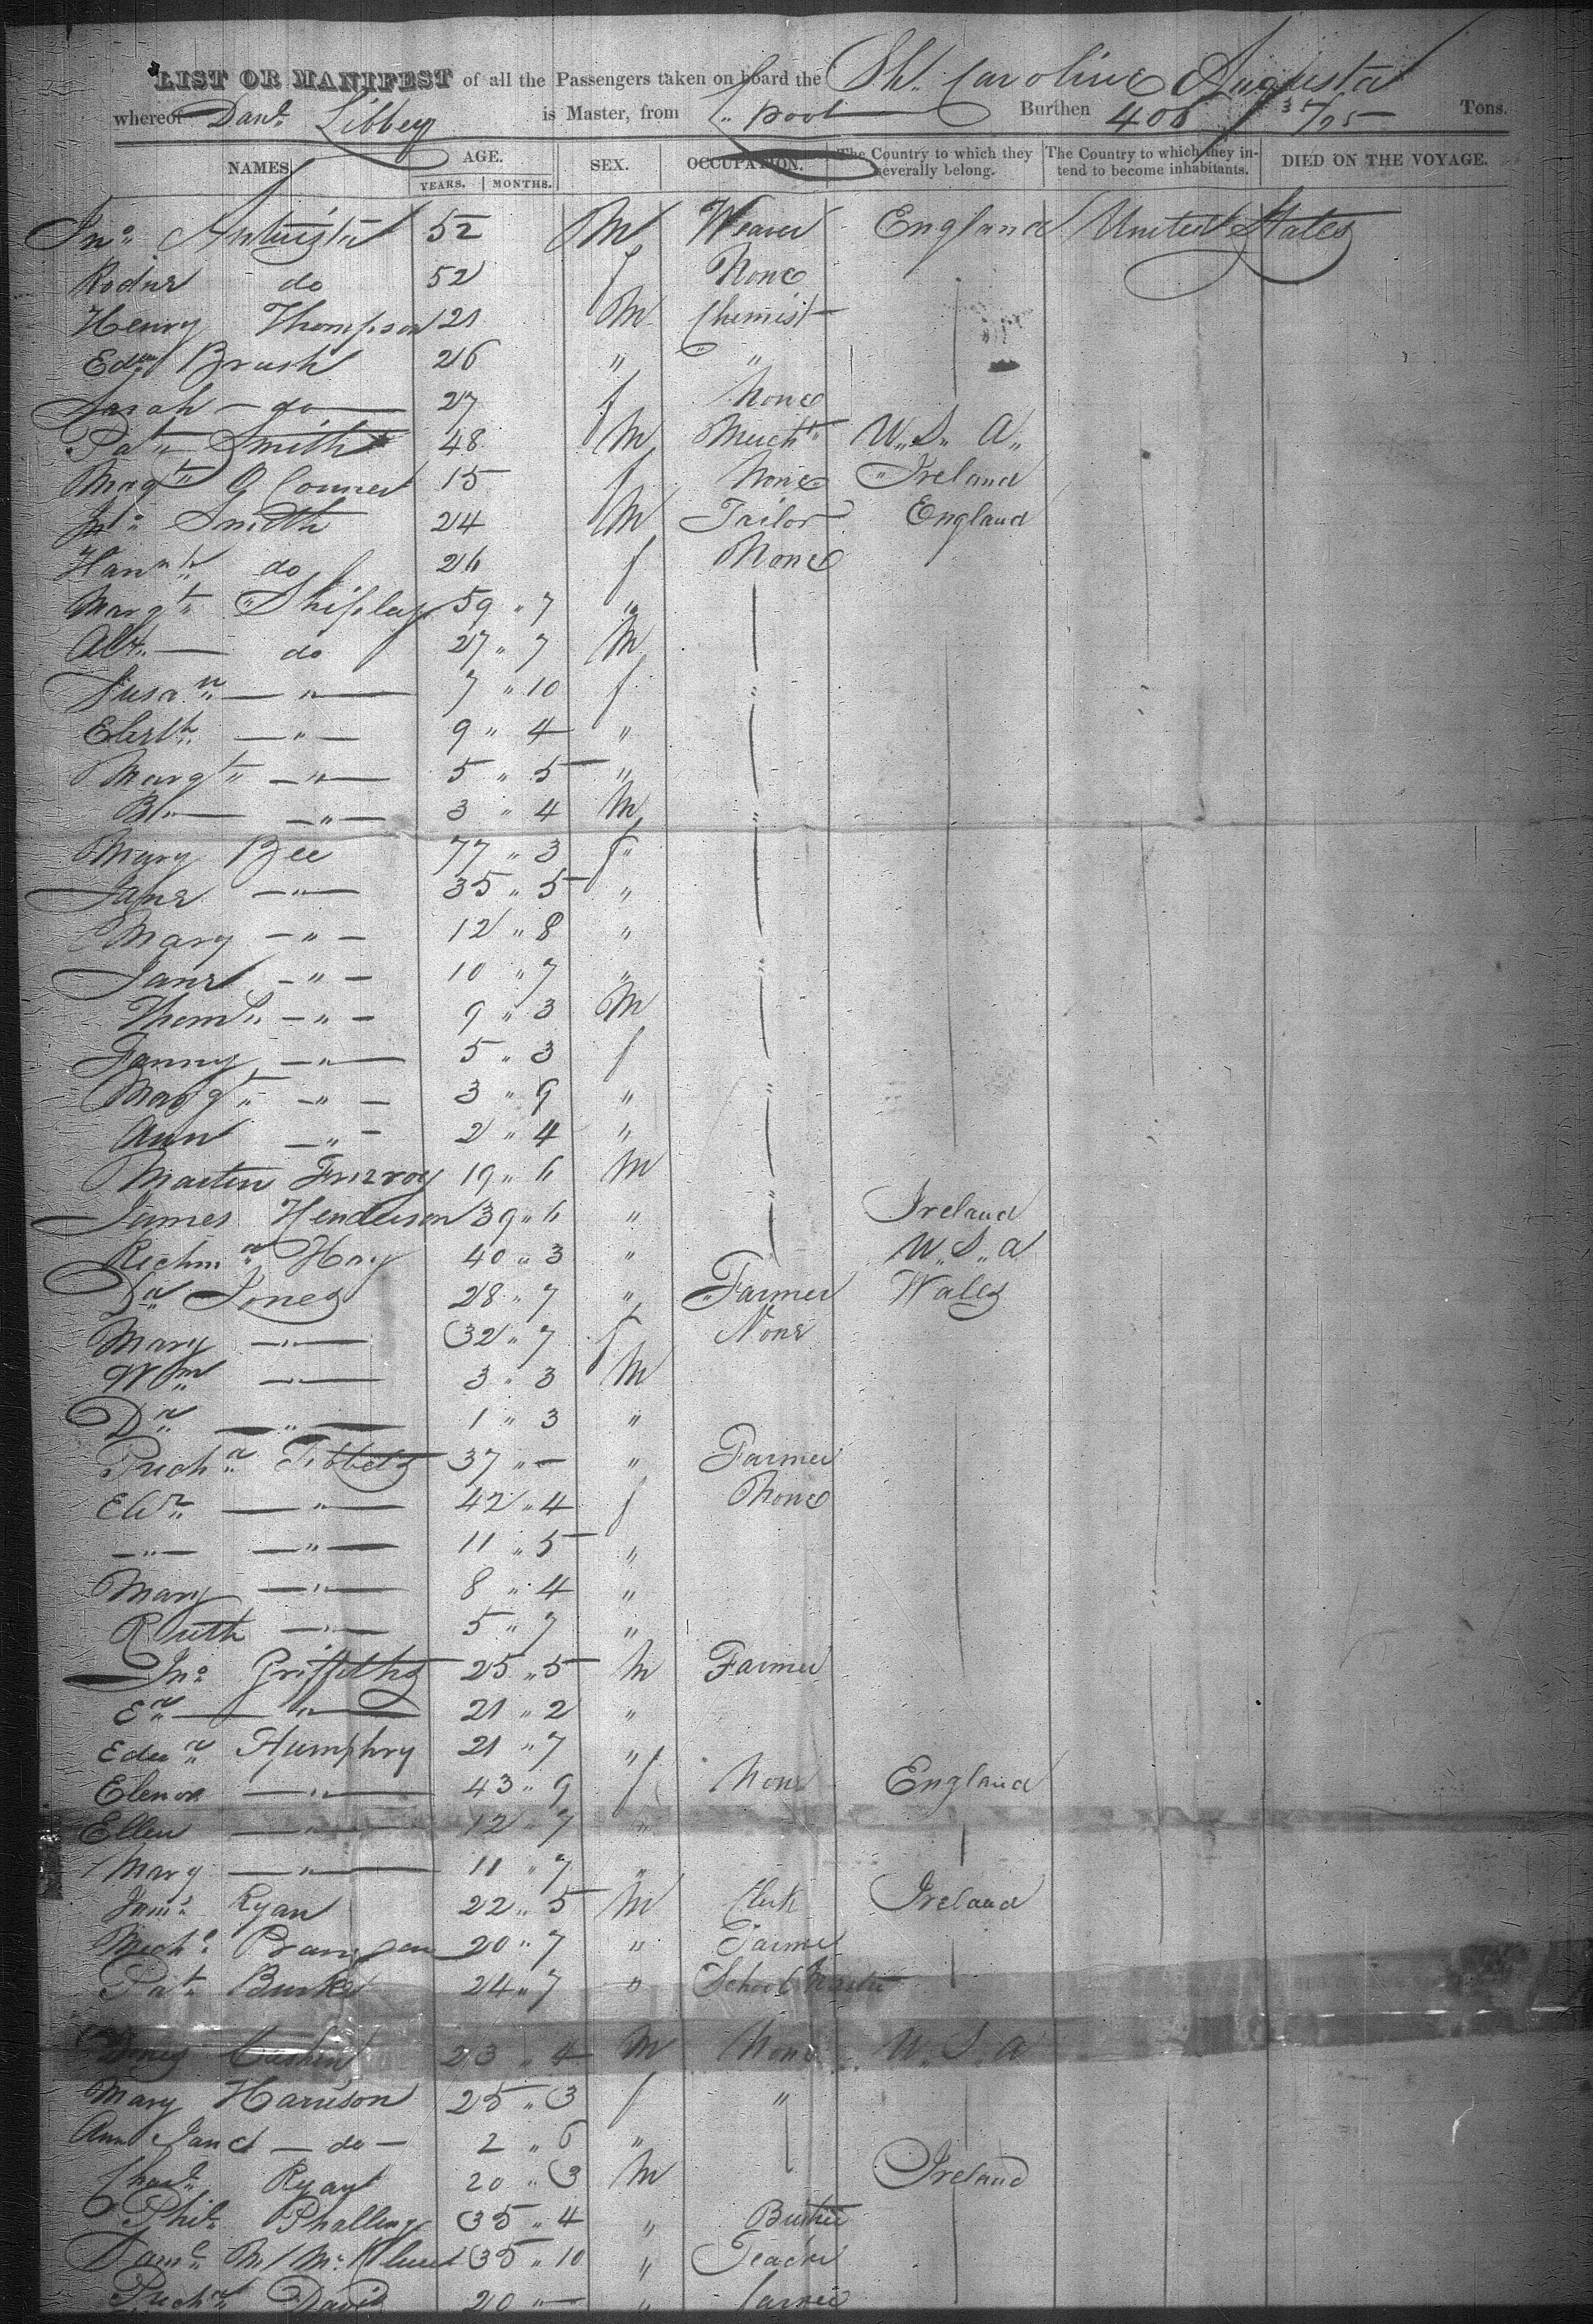 LIST OR MANIFEST of all the Passengers taken on board the Sh. Caroline Augusta
whereof Danl. Libbey is Master, from L.pool Burthen 406 35/95 Tons.
NAMES AGE. YEARS. MONTHS. SEX. OCCUPATION. The Country to which they severally belong. The Country to which they intend to become inhabitants. DIED ON THE VOYAGE.
Jno. 52 M Weaver England United States
do 52 f None
Henry Thompson 21 M Chemist
Edw. Brush 26 " "
Sarah - do 27 f None
Pat. Smith 48 M Mercht. U.S. A.
Magt. 15 f None Ireland
Jno. Smith 24 M Tailor England
Hanh. do 26 f None
Margt. Shipley 59 " 7 "
do 27 " 7 M
Susan " 7 " 10 f "
" 9 " 4 "
Margt. " 5 " 5 "
" 3 " 4 M "
Mary Bee 77 " 3 f
Jane " 35 " 5 "
Mary " 12 " 8 "
Jane " 10 " 7 " "
Thoms. " 9 " 3 M
Fanny " 5 " 3 f
Margt. " 3 " 9 " "
Ann " 2 " 4 "
Martin 19 " 6 M
James Henderson 39 " 6 " " Ireland
Richm. Hay 40 " 3 " U.S.A
Dn. Jones 28 " 7 " Farmer Wales
Mary " 32 " 7 f None
Wm " 3 " 3 M
Dn. " 1 " 3 "
Richd. Tibbets 37 " - " Farmer
" 42 " 4 f None
" " 11 " 5 "
Mary " 8 " 4 "
Ruth " 5 " 7 "
Jno. Griffiths 25 " 5 M Farmer
" 21 " 2 "
Humphry 21 " 7 "
Elenor " 43 " 9 f None England
Ellen " 12 " 7 "
Mary " 11 " 7 "
Jams. Ryan 22 " 5 M Clerk Ireland
Michl. 20 " 7 " Farmer
Pat. Burke 24 " 7 " School Master
23 " 4 M None U.S.A
Mary Harrison 25 " 3 f "
Ann Jane - do - 2 " 6 "
Chas. Ryan 20 " 3 M Ireland
Phil. 35 " 4 "
Saml. 35 " 10 " Teacher
Richd. David 20 " - "